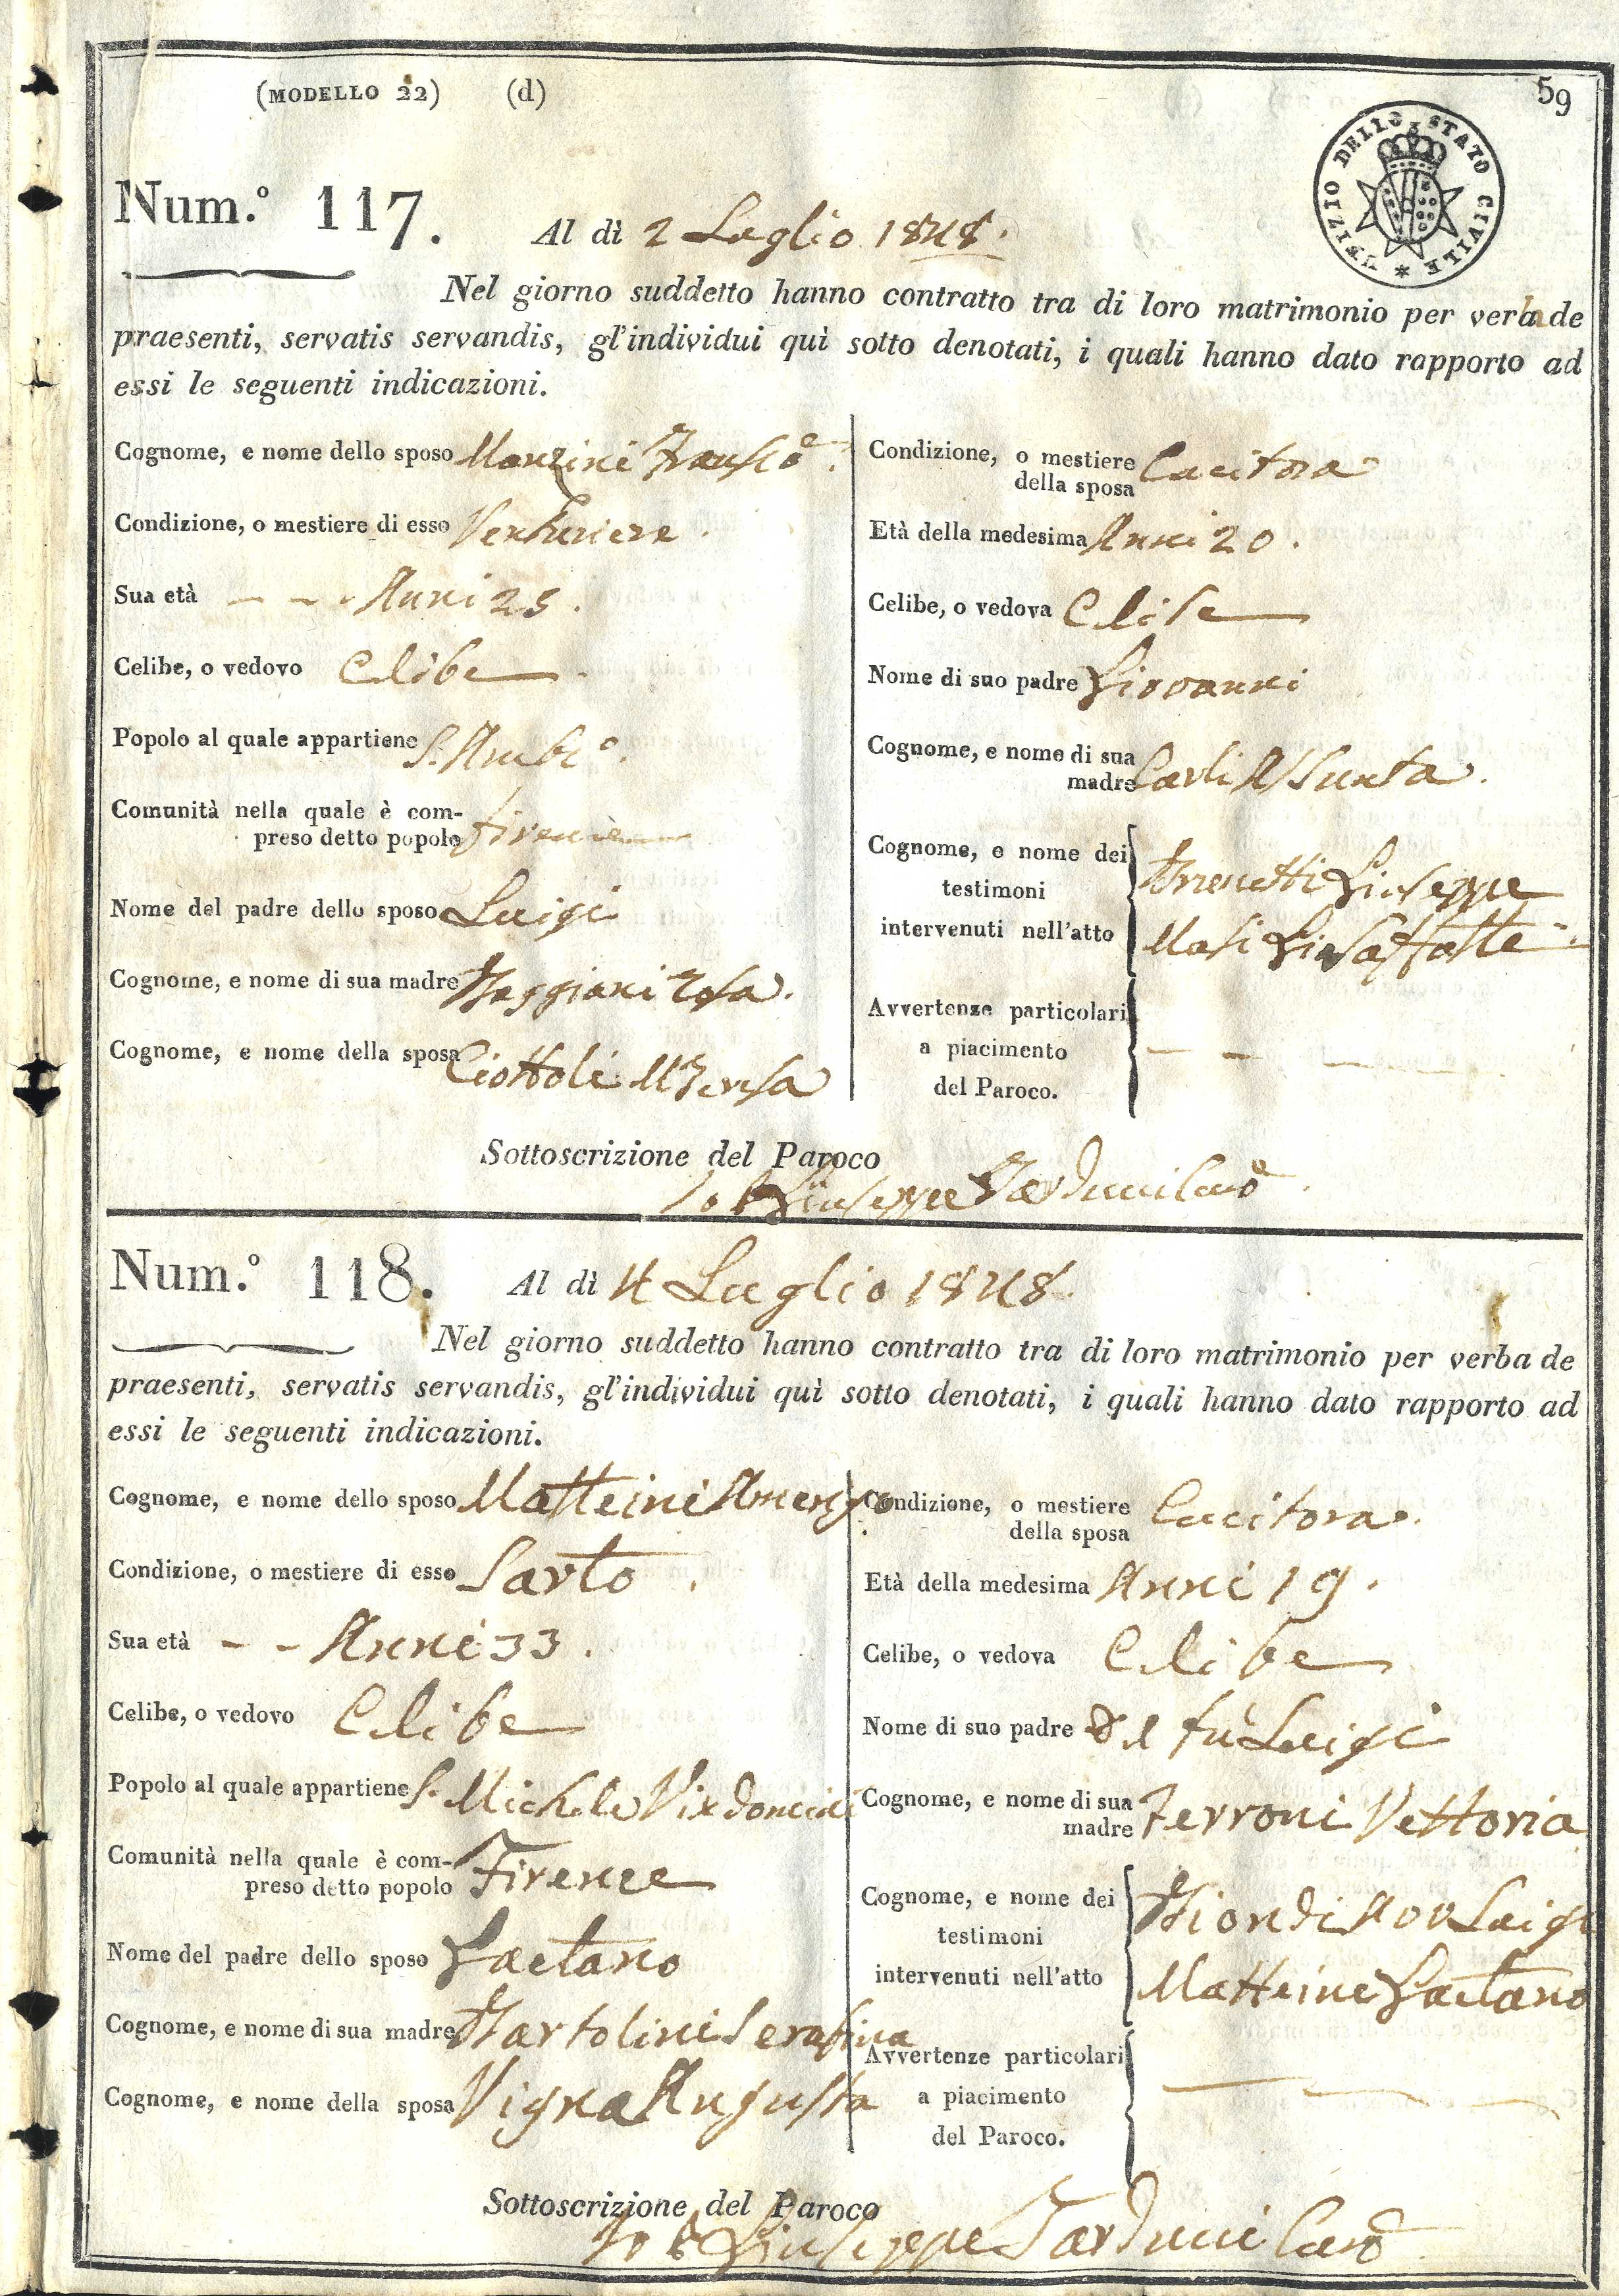 (MODELLO 22) (d)
59
UFIZIO DELLO STATO CIVILE *
Num.° 117. Al dì 2 Luglio 1848.
Nel giorno suddetto hanno contratto tra di loro matrimonio per verba de
praesenti, servatis servandis, gl'individui quì sotto denotati, i quali hanno dato rapporto ad
essi le seguenti indicazioni.
Cognome, e nome dello sposo Manzini Franc.°
Condizione, o mestiere di esso
Sua età Anni 25.
Celibe, o vedovo Clibe
Popolo al quale appartiene S. Amb.°
Comunità nella quale è com-
preso detto popolo Firenze
Nome del padre dello sposo Luigi
Cognome, e nome di sua madre Baggiani Rosa.
Cognome, e nome della sposa Ciottoli
Condizione, o mestiere
della sposa Cucitora
Età della medesima Anni 20.
Celibe, o vedova Clibe
Nome di suo padre Giovanni
Cognome, e nome di sua
madre Carli Assunta.
Cognome, e nome dei
testimoni
intervenuti nell'atto
Brunetti Giuseppe
Masi Giosaffatte
Avvertenze particolari
a piacimento
del Paroco.
Sottoscrizione del Paroco
Io P. Giuseppe Tarducci
Num.° 118. Al dì 4 Luglio 1848.
Nel giorno suddetto hanno contratto tra di loro matrimonio per verba de
praesenti, servatis servandis, gl'individui quì sotto denotati, i quali hanno dato rapporto ad
essi le seguenti indicazioni.
Cognome, e nome dello sposo Matteini Amerigo
Condizione, o mestiere di esso Sarto.
Sua età Anni 33.
Celibe, o vedovo Clibe
Popolo al quale appartiene S. Michele Visdomini
Comunità nella quale è com-
preso detto popolo Firenze
Nome del padre dello sposo Gaetano
Cognome, e nome di sua madre Bartolini Serafina
Cognome, e nome della sposa Vigna Augusta
Condizione, o mestiere
della sposa Cucitora.
Età della medesima Anni 19.
Celibe, o vedova Clibe
Nome di suo padre Del fù Luigi
Cognome, e nome di sua
madre Ferroni Vettoria
Cognome, e nome dei
testimoni
intervenuti nell'atto
Biondi Avv Luigi
Matteini Gaetano
Avvertenze particolari
a piacimento
del Paroco.
Sottoscrizione del Paroco
Io P. Giuseppe Tarducci